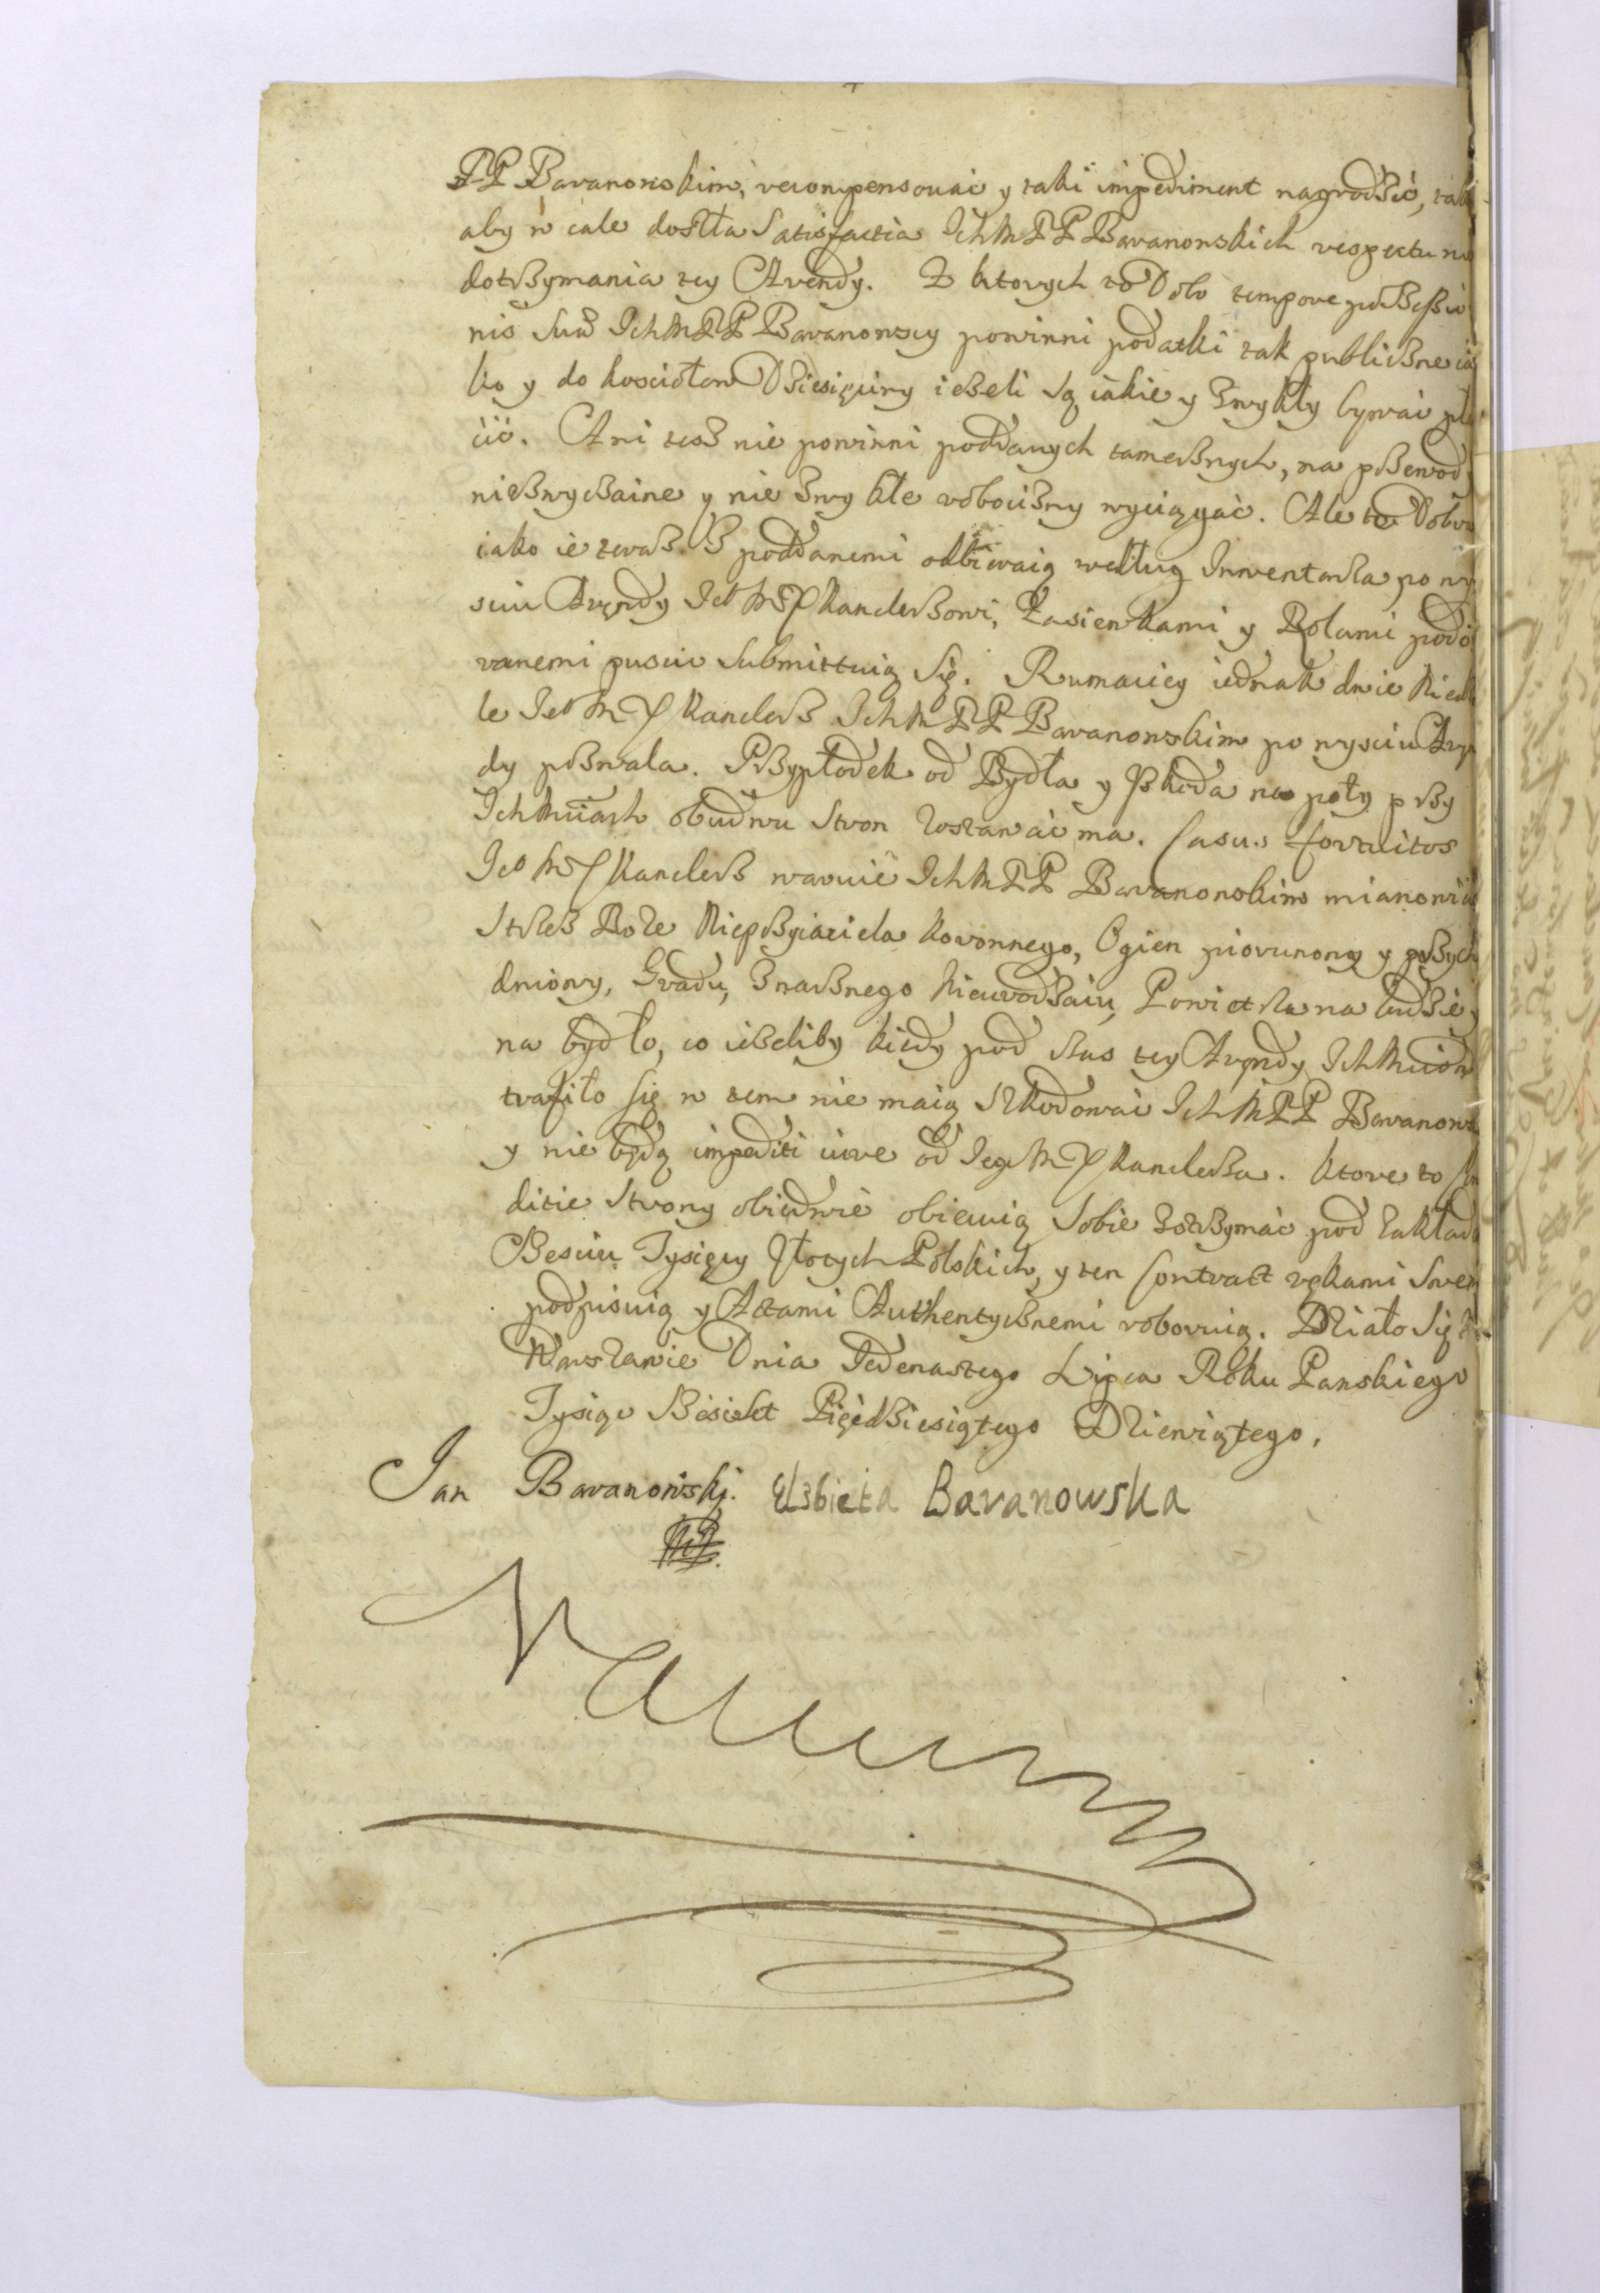 PP Baranowskim, recompensować y taki impediment nagrodzić, tak
aby w cale doszła Satisfactia IchMPP Baranowskich respectu nie
dotrzymania tey Arendy. Z ktorych to Dobr tempore possessio
nis suæ IchMPP Baranowscy powinni podatki tak publiczne ia
ko y do kosciołow Dziesięciny ieżeli są iakie y zwykły bywać pła
cić. Ani tesz nie powinni poddanych tamecznych, na przewody
niezwyczaine y nie zwykłe robocizny wyciągać. Ale te Dobra
iako ie teraz z poddanemi odbieraią według Inwentarza, po wy
sciu Arędy Ieo MP Kanclerzowi, z zasiewkami y Rolami podo
ranemi puscić submittuią się. Rumaciey iednak dwie Niedzie
le Ieo MP Kanclerz IchMPP Baranowskim po wysciu Aręn
dy pozwala. Przypłodek od Bydła y Przoda na poły przy
Ichmciach obudwu stron zostawać ma. Casus fortuitos
Ieo MP Kanclerz waruie IchMPP Baranowskim mianowicie
strzesz Boże Nieprzyiaciela koronnego, Ogien piorunowy y przycho
dniowy, Gradu, Znacznego Nieurodzaiu, Powietrza na ludzie y
na bydło, co ieżeliby kiedy pod czas tey Arędy Ichmciom
trafiło się w tem nie maią szkodować IchMPP Baranowscy
y nie będą impediti iure od Iego MP Kanclerza. Ktore to Con
ditie strony obiedwie obiecuią sobie zotrzymać pod zakładem
Szesciu Tysięcy Złotych Polskich, y ten Contract rękami swemi
podpisuią y Actami Authentycznemi roboruią. Działo się w
Warszawie Dnia Iedenastego Lipca Roku Panskiego
Tysiąc Szesćset Pięćdziesiątego Dziewiątego.
Jan Baranowskj. Elzbieta Baranowska